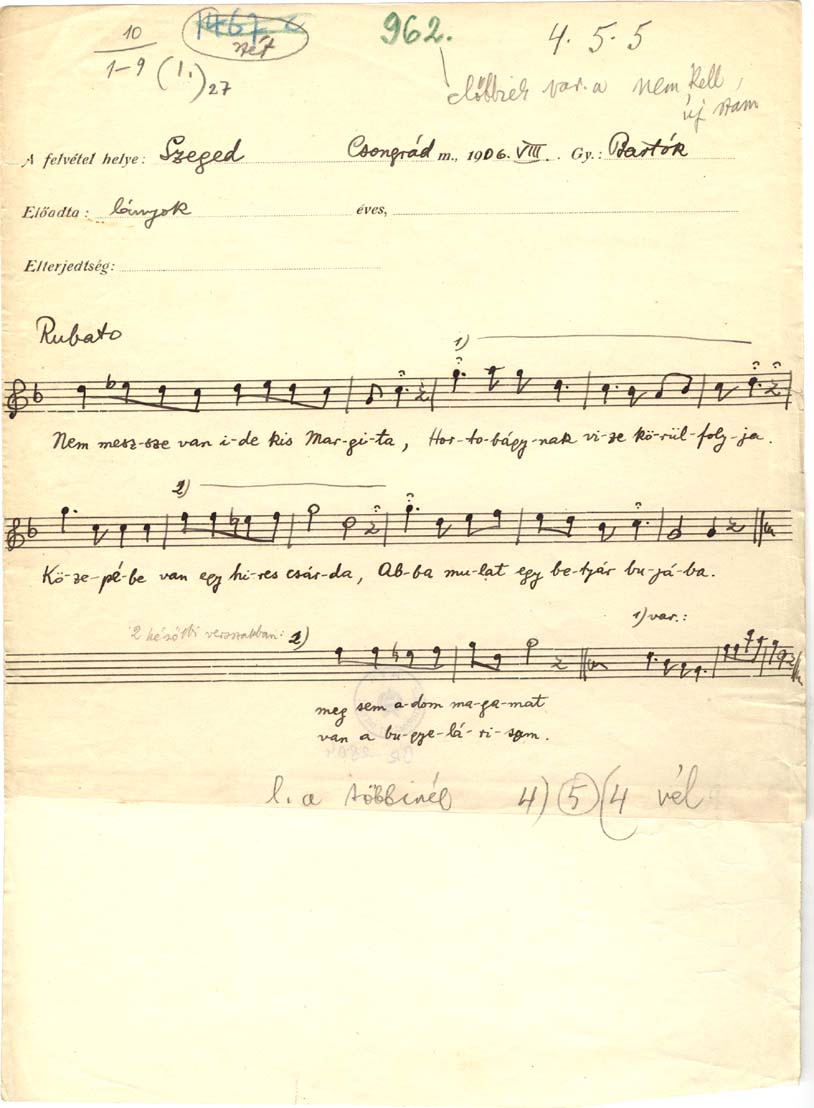 10 1467. 962. 4. 5. 5
1-9 (I.) 27
var. a nem kell,
új
A felvétel helye: Szeged Csongrád m., 1906. VIII. Gy.: Bartók
Előadta: lányok éves,
Elterjedtség:
Rubato
1)
Nem mesz-sze van i-de kis Mar-gi-ta, Hor-to-bágy-nak vi-ze kö-rül-foly-ja.
2)
Kö-ze-pé-be van egy hi-res csár-da, Ab-ba mu-lat egy be-tyár bu-já-ba.
2 késöbbi versszakban: 2) 1) var.:
meg sem a-dom ma-ga-mat
van a bu-gye-lá-ri-som.
l. a többinél 4) (5) (4 vél